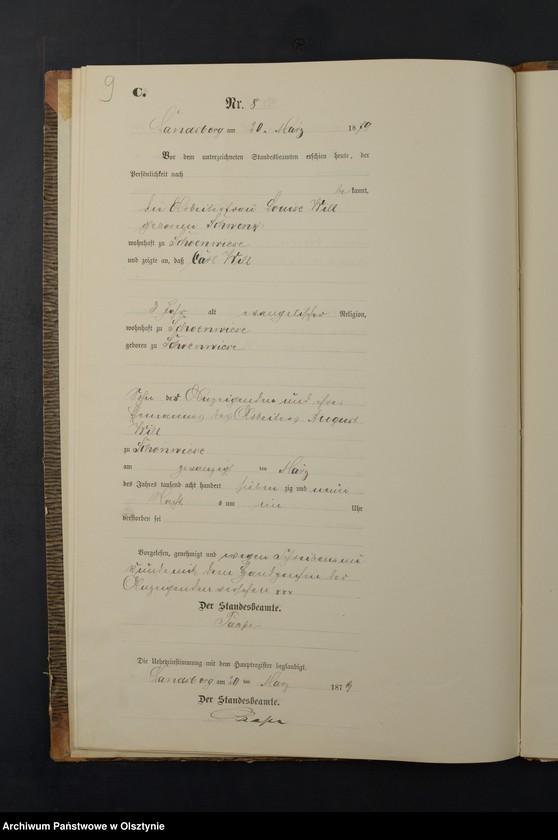 9
C.
Nr. 8
Landsberg am 20. März 1879
Vor dem unterzeichneten Standesbeamten erschien heute, der
Persönlichkeit nach
be kannt,
die Arbeiterfrau Louise Will
geborene Schwenz
wohnhaft zu Schoenwiese
und zeigte an, daß Carl Will
alt evangelischer Religion,
wohnhaft zu Schoenwiese
geboren zu Schoenwiese
Sohn des Anzeigenden und ihres
Ehemannes des Arbeiters August
Will
zu Schoenwiese
am ten März
des Jahres tausend acht hundert sieben zig und neun
Nachts um ein Uhr
verstorben sei
Vorgelesen, genehmigt und wegen Schreibensun
kunde mit dem Handzeichen der
Anzeigenden versehen xxx
Der Standesbeamte.
Die Uebereinstimmung mit dem Hauptregister beglaubigt.
Landsberg am 20 ten März 1879
Der Standesbeamte.
Archiwum Państwowe w Olsztynie